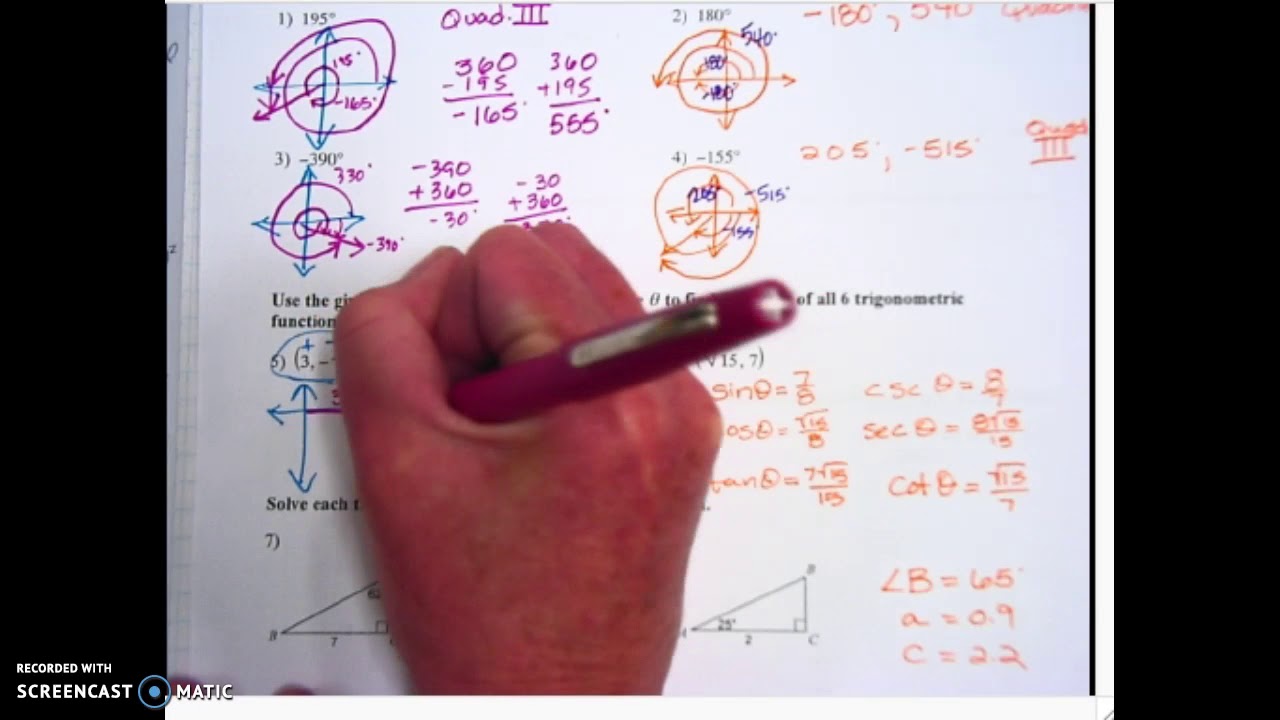 1) 195°
Quad. III
195°
-165°
360
-195
-165°
360
+195
555°
2) 180°
540°
180°
-180°
-180°, 540°
3) -390°
330°
-390°
-390
+360
-30°
-30
+360
4) -155°
205°
-515°
-155°
205°, -515°
Quad
III
Use the
θ to
of all 6 trigonometric
function
5) (3, -
+ -
15, 7)
sinθ = 7/8
cscθ = 8/7
osθ = √15/8
secθ = 8√15/15
tanθ = 7√15/105
cotθ = √15/7
Solve each
7)
B
7
A
25°
2
B
C
∠B = 65°
a = 0.9
c = 2.2
RECORDED WITH
SCREENCAST MATIC